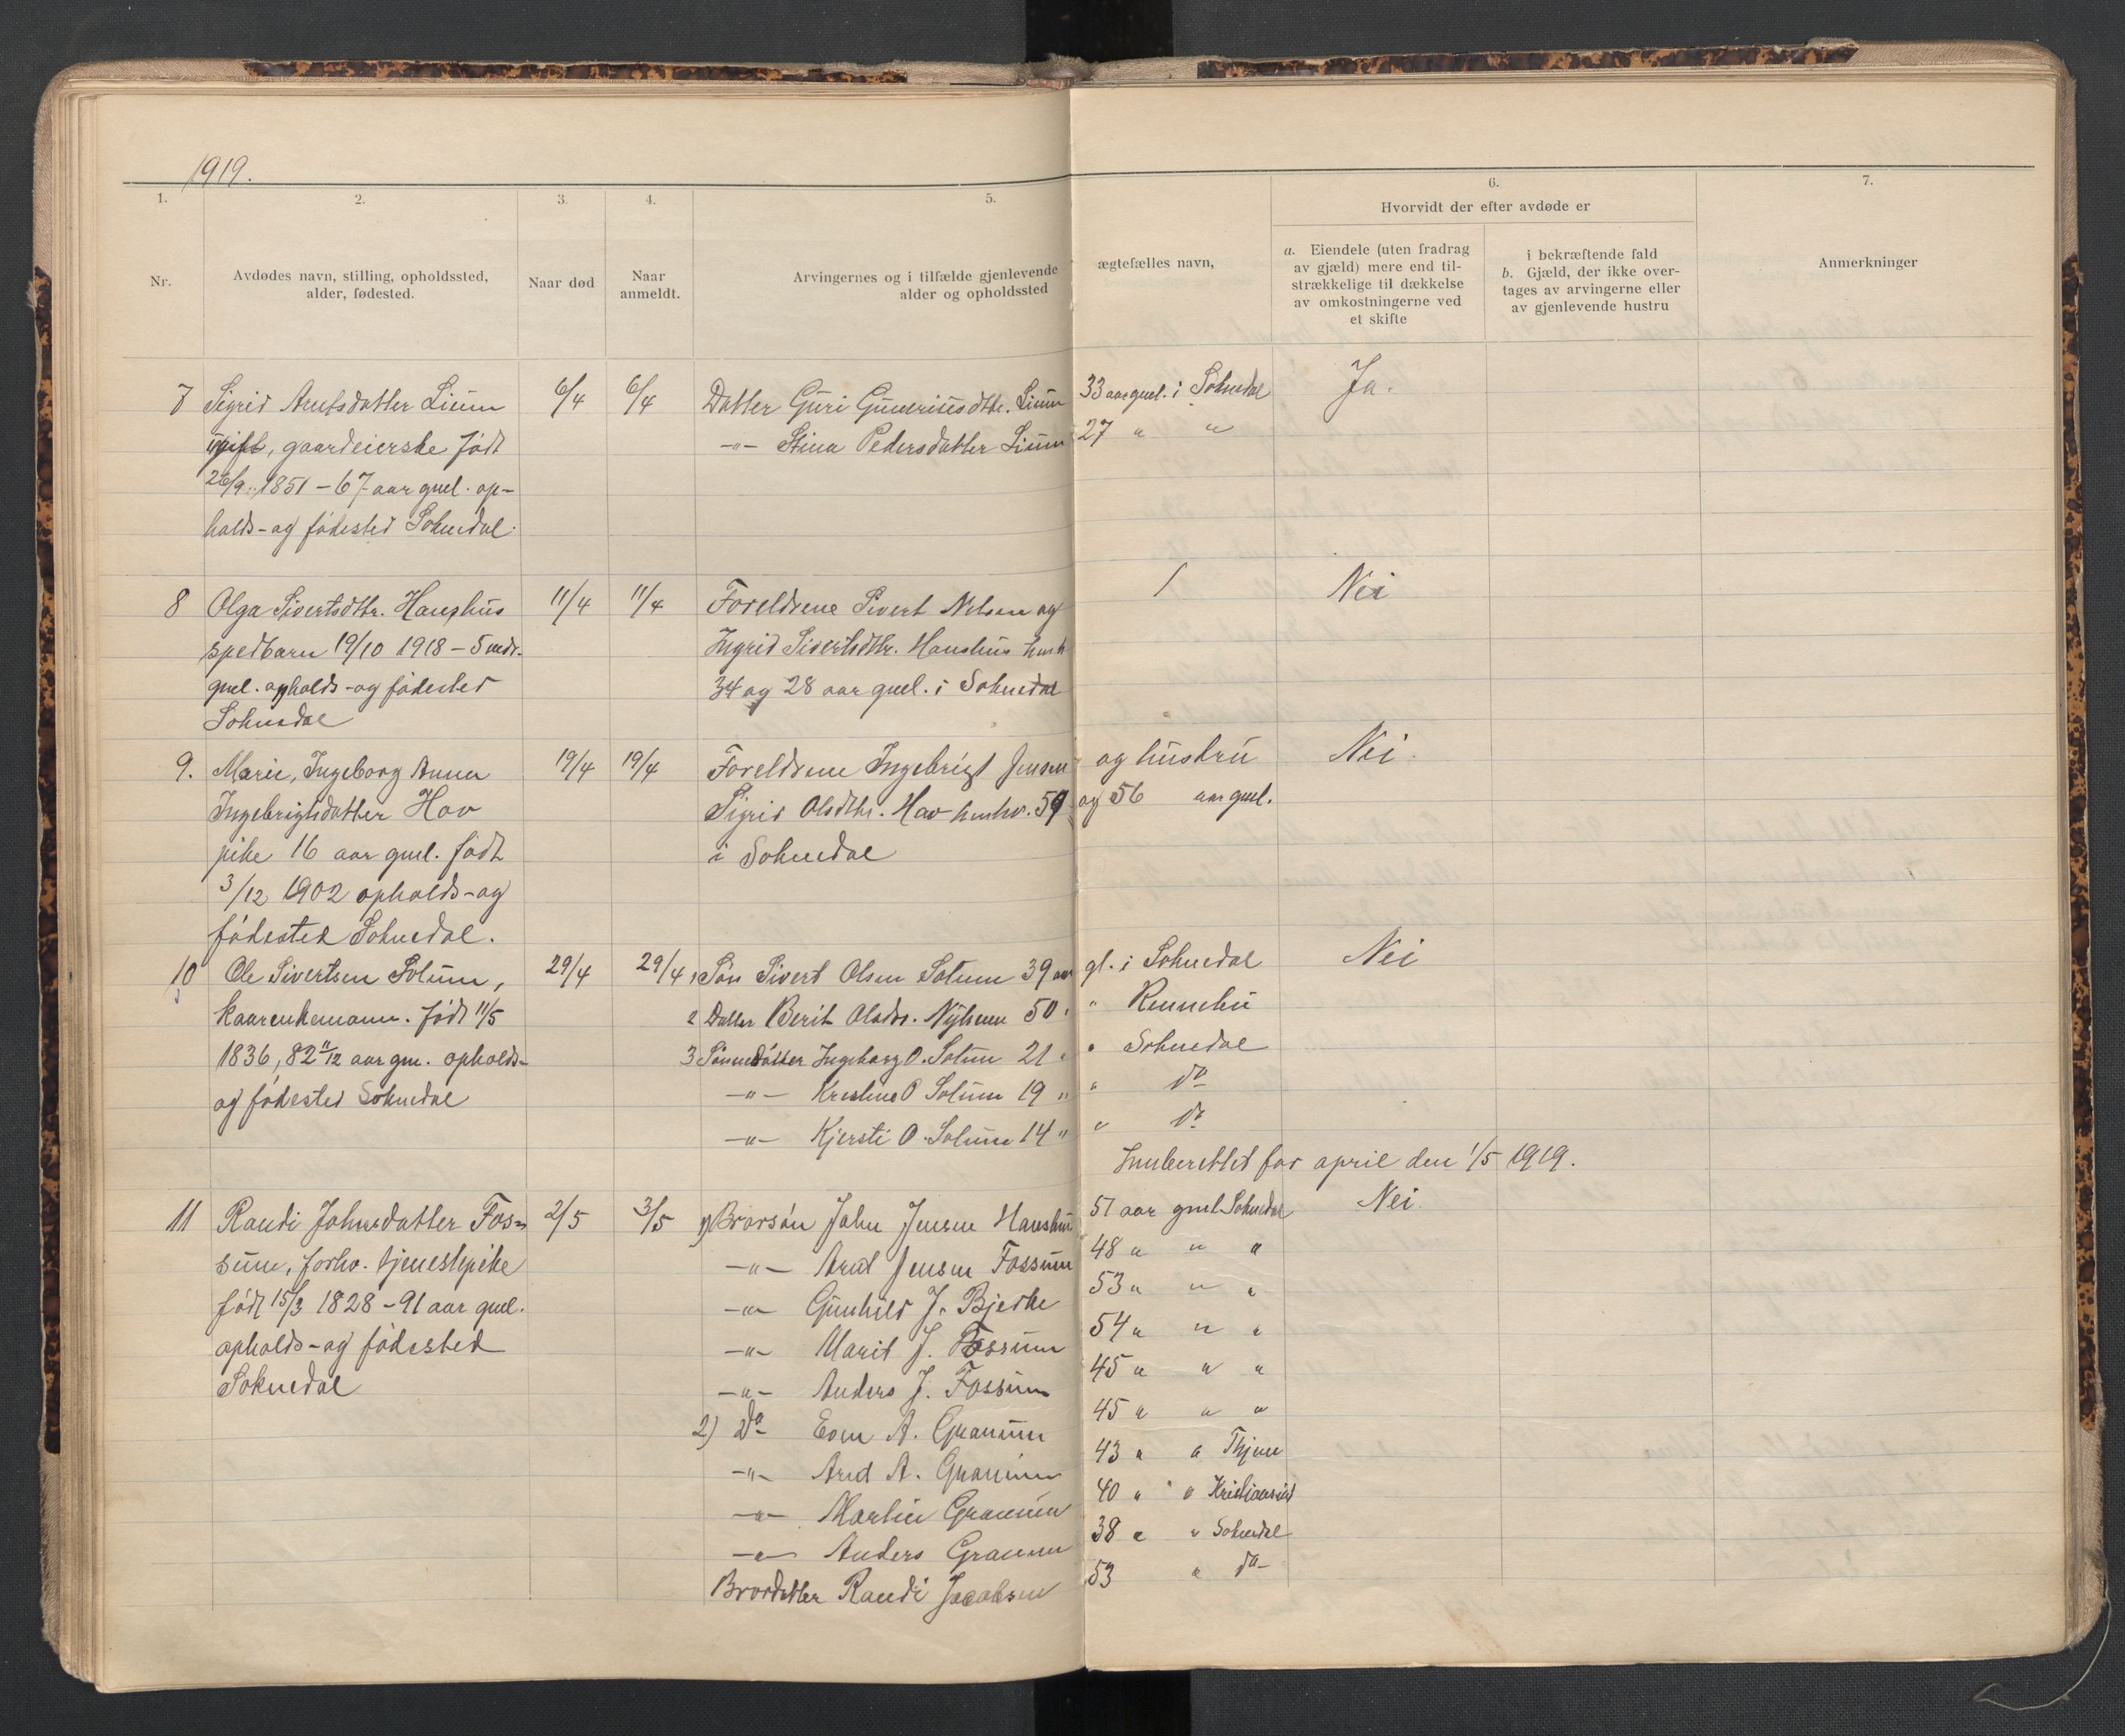 1919.
1.
2.
3.
4.
5.
6.
7.
Nr.
Avdødes navn, stilling, opholdssted,
alder, fødested.
Naar død
Naar
anmeldt.
Arvingernes og i tilfælde gjenlevende ægtefælles navn,
alder og opholdssted
Hvorvidt der efter avdøde er
a. Eiendele (uten fradrag
av gjæld) mere end til-
strækkelige til dækkelse
av omkostningerne ved
et skifte
i bekræftende fald
b. Gjæld, der ikke over-
tages av arvingerne eller
av gjenlevende hustru
Anmerkninger
7 Sigrid Arntsdatter Lium 6/4 6/4 Datter Guri Guneriusdtr. Lium 33 aar gml. i Soknedal Ja.
ugift, gaardeierske født -"- Stina Pedersdatter Lium 27 " "
26/9 1851 - 67 aar gml. op-
holds- og fødested Soknedal.
8 Olga Sivertsdtr. Haukhus 11/4 11/4 Foreldrene Sivert Nilsen og / Nei
spedbarn 19/10 1918 - 5 mdr. Ingrid Sivertsdtr. Haushus
gml. opholds- og fødested 34 og 28 aar gml. i Soknedal
Soknedal
9. Marie, Ingeborg Anna 19/4 19/4 Foreldrene Ingebrigt Jensen og hustru Nei.
Ingebrigtsdatter Hov Sigrid Olsdtr. Hov 59 og 56 aar gml.
pike 16 aar gml. født i Soknedal
3/12 1902 opholds- og
fødested Soknedal.
10 Ole Sivertsen Solum, 29/4 29/4 1 Søn Sivert Olsen Solum 39 aar gl. i Soknedal Nei
kaarenkemann. født 11/5 2 Datter Berit Olsdtr. Nyhuus 50 " " Rennebu
1836, 82 11/12 aar gm. opholds- 3 Sønnedatter Ingeborg O. Solum 21 " " Soknedal
og fødested Soknedal -"- Kristine O Solum 19 " " do
-"- Kjersti O. Solum 14 " " do
Innberettet for april den 1/5 1919.
11 Randi Johnsdatter Fos- 2/5 3/5 1) Brorsøn John Jensen Haushus 51 aar gml. Soknedal Nei
sum, forhv. tjenestepike -"- Arnt Jensen Fossum 48 " " "
født 15/3 1828 - 91 aar gml. -"- Gunhild J. Bjerke 53 " " "
opholds- og fødested -"- Marit J. Fossum 54 " " "
Soknedal -"- Anders J. Fossum 45 " " "
2) Do A. Granum 45 " " "
-"- Arnt A. Granum 43 " "
-"- Martin Granum 40 " " Kristiansund
-"- Anders Granum 38 " " Soknedal
Brordatter Randi Jacobsen 53 " do -